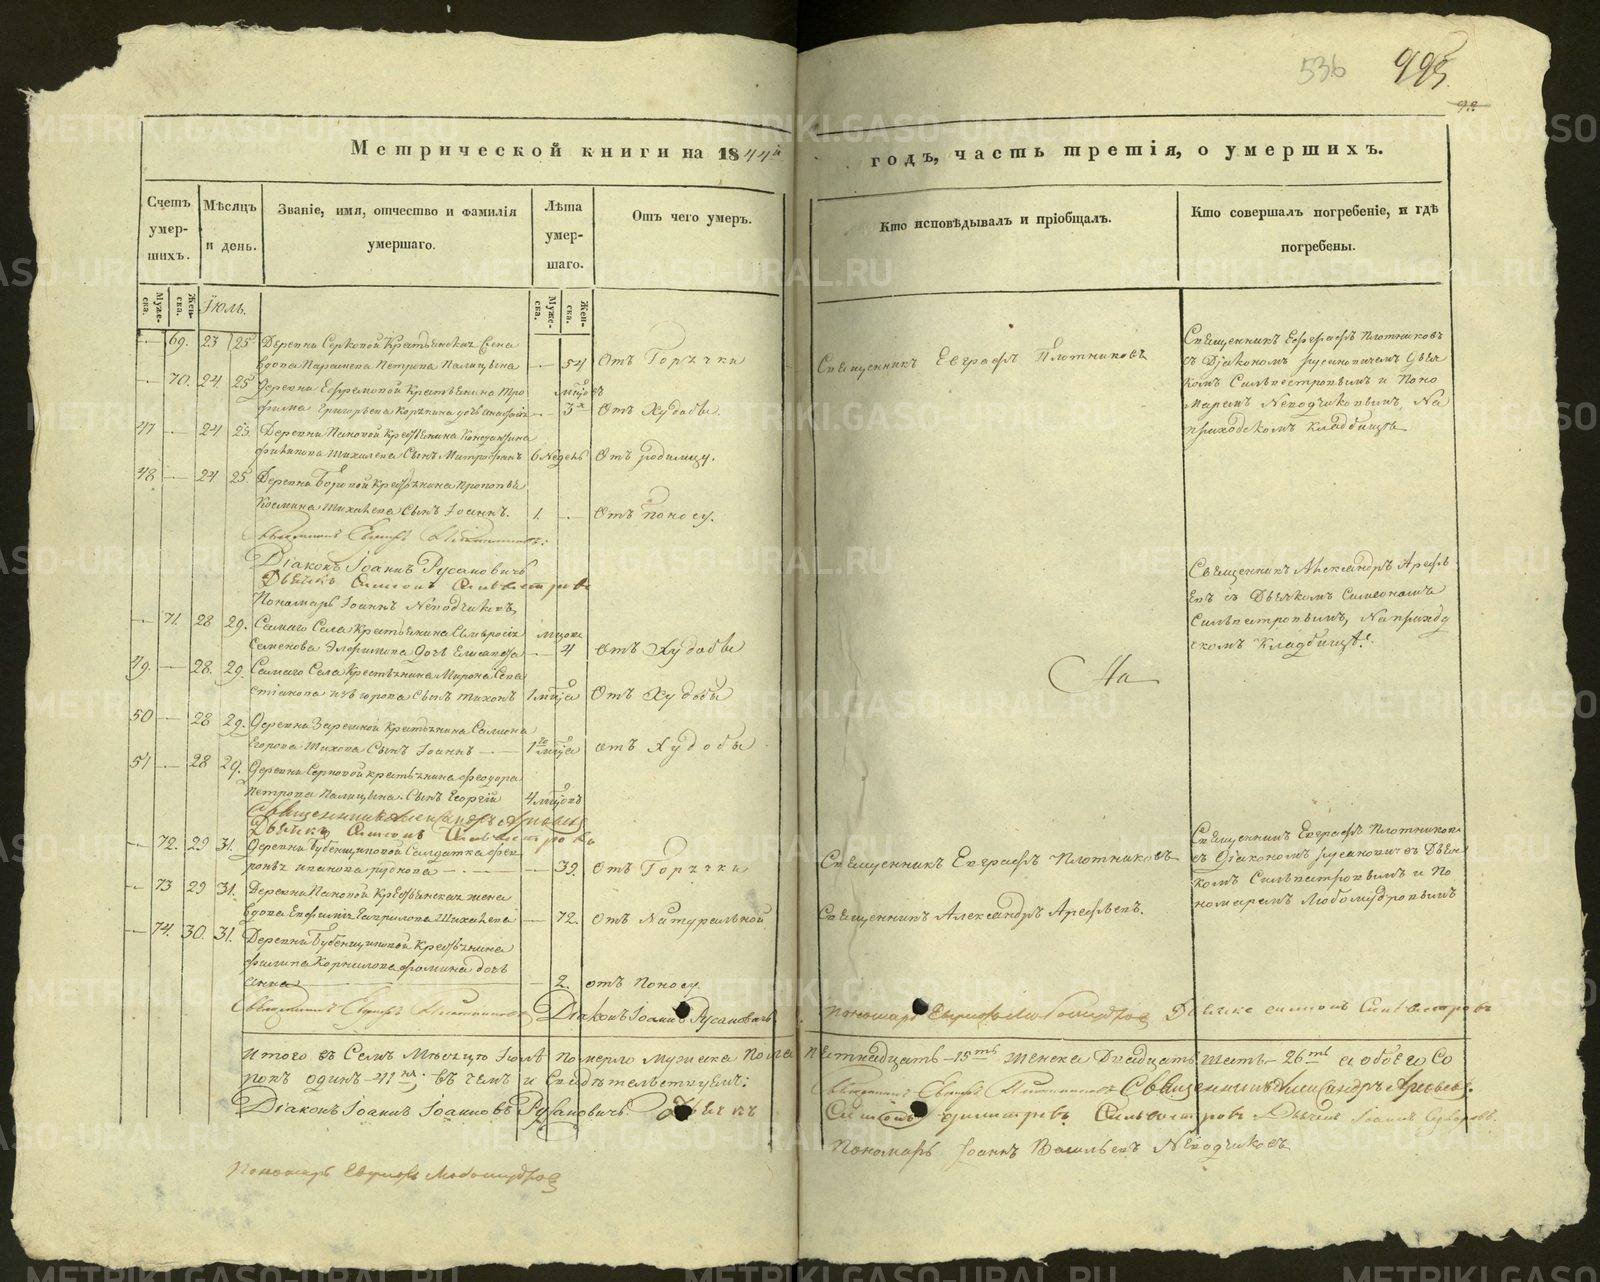 536 995.
Метрической книги на 1844й годъ, часть третія, о умершихъ.
Счетъ умер-шихъ.
Мѣсяцъ и день.
Званіе, имя, отчество и фамилія умершаго.
Лѣта умер-шаго.
Отъ чего умеръ.
Кто исповѣдывалъ и пріобщалъ.
Кто совершалъ погребеніе, и гдѣ погребены.
Муже-ска.
Жен-ска.
Іюль.
Муже-ска.
Жен-ска.
— 69. 23 25 Деревни Серковой Крестьянская жена
вдова Параскева Петрова Палицына — 54 Отъ Горячки
Священникъ Евграфъ Плотниковъ
Священникъ Евграфъ Плотниковъ
съ Діакономъ Русановичемъ Дьяч
комъ Сильвестровымъ и Поно
маремъ Неводчиковымъ, На
приходскомъ кладбищѣ
— 70. 24 25 Деревни Ефремовой Крестьянина Тро
фима Григорьева дочь — 3х Отъ Худобы.
47 — 24 25. Деревни Пановой Крестьянина Константина
Филипова Шихалева Сынъ Митрофанъ 6 Недель Отъ родимцу.
48 — 24 25. Деревни Боровой Крестьянина Прокопья
Космина Шихалева Сынъ Іоаннъ. 1. — Отъ поносу.
Священникъ Евграфъ Плотниковъ:
Діаконъ Іоаннъ Русановичь
Дьячекъ Симеонъ Сильвестровъ
Пономарь Іоаннъ Неводчиковъ
— 71. 28 29. Самаго Села Крестьянина Амвросія
Семенова дочь Елисавета — 4 Отъ Худобы
Священникъ Александръ Арефь
евъ съ Дьячкомъ Симеономъ
Сильвестровымъ, На приход
скомъ Кладбищѣ.
49. — 28. 29. Самаго Села Крестьянина Мирона Сева
стіанова Сынъ Тихонъ 1 мца Отъ Худобы
На
50 — 28 29. Деревни Зарѣчной Крестьянина Самсона
Егорова Шихова Сынъ Іоаннъ — 1 мца отъ Худобы
51 — 28 29. Деревни Серковой крестьянина Феодора
Петрова Палицына Сынъ Георгій 4 мцовъ
Священникъ Александръ Арефьевъ
Дьячекъ Симеонъ Сильвестровъ
— 72. 29 31. Деревни Бубенщиковой Солдатка
Иванова — 39. Отъ Горячки
Священникъ Евграфъ Плотниковъ
Священникъ Евграфъ Плотников
съ Діакономъ Русановичемъ Дьяч
комъ Сильвестровымъ и По
номаремъ Любомудровымъ
— 73 29 31. Деревни Пановой Крестьянская жена
вдова Гаврилова Шихалева — 72. Отъ Натуральной
Священникъ Александръ Арефьевъ.
— 74. 30. 31. Деревни Бубенщиковой Крестьянина
Филипа Корнилова Фомина дочь
Анна — 2. отъ Поносу.
Священникъ Евграфъ Плотниковъ Діаконъ Іоаннъ Русановичь
Пономарь Любомудровъ Дьячекъ Симеонъ Сильвестровъ
Итого въ Семъ Мѣсяцѣ Іюлѣ померло мужеска пола пятнадцать — 15ть женска Двадцать шесть — 26ть а обоего Со
вокъ одинъ — 41нъ: въ чемъ и Свидѣтельствуемъ: Священникъ Евграфъ Плотниковъ Священникъ Александръ Арефьевъ.
Діаконъ Іоаннъ Іоанновъ Русановичь. Дьячекъ Симеонъ Димитріевъ Сильвестровъ
Пономарь Іоаннъ Васильевъ Неводчиковъ
Пономарь Любомудровъ
METRIKI.GASO-URAL.RU